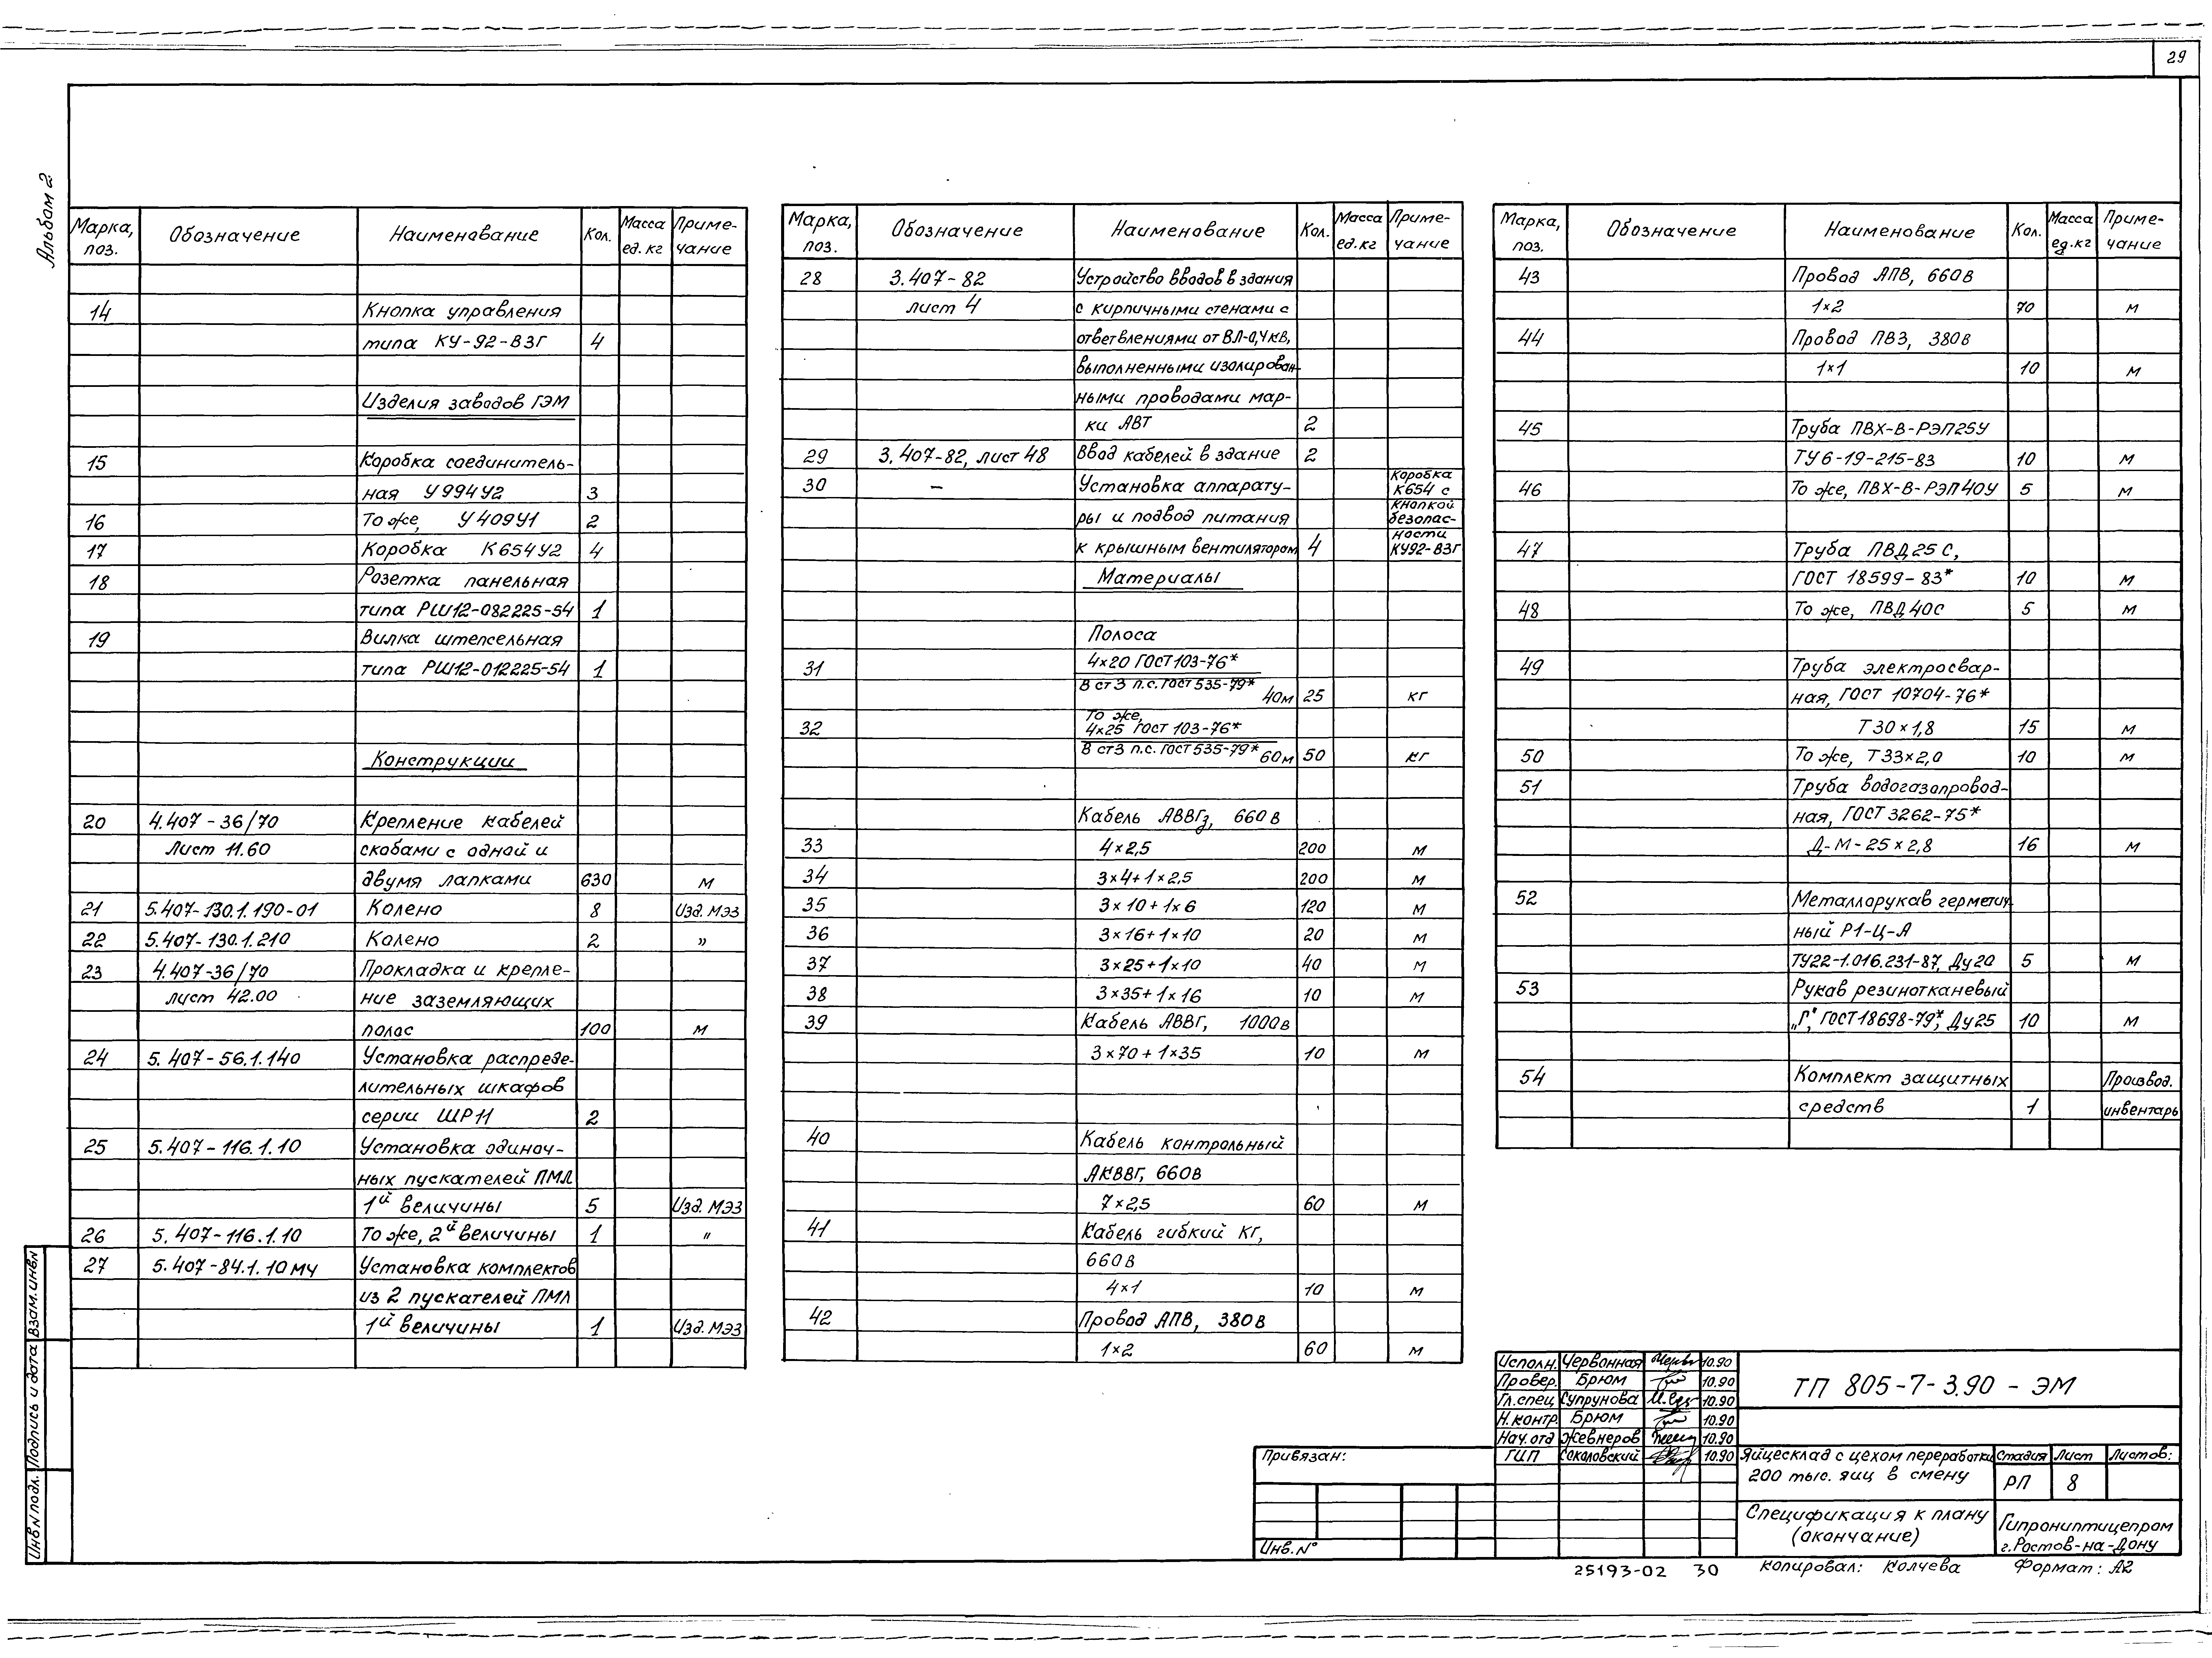 29
Альбом 2
Марка, поз. Обозначение Наименование Кол. Масса ед.кг Примечание
14 Кнопка управления
типа КУ-92-ВЗГ 4
Изделия заводов ГЭМ
15 Коробка соединитель-
ная У994У2 3
16 То же, У409У1 2
17 Коробка К654У2 4
18 Розетка панельная
типа РШ12-082225-54 1
19 Вилка штепсельная
типа РШ12-012225-54 1
Конструкции
20 4.407-36/70 Крепление кабелей
Лист 11.60 скобами с одной и
двумя лапками 630 м
21 5.407-130.1.190-01 Колено 8 Изд. МЭЗ
22 5.407-130.1.210 Колено 2 "
23 4.407-36/70 Прокладка и крепле-
лист 42.00 ние заземляющих
полос 100 м
24 5.407-56.1.140 Установка распреде-
лительных шкафов
серии ШР11 2
25 5.407-116.1.10 Установка одиноч-
ных пускателей ПМЛ
1й величины 5 Изд. МЭЗ
26 5.407-116.1.10 То же, 2й величины 1 "
27 5.407-84.1.10МЧ Установка комплектов
из 2 пускателей ПМЛ
1й величины 1 Изд. МЭЗ
Марка, поз. Обозначение Наименование Кол. Масса ед.кг Примечание
28 3.407-82 Устройство вводов в здания
лист 4 с кирпичными стенами с
ответвлениями от ВЛ-0,4кВ,
выполненными изолирован-
ными проводами мар-
ки АВТ 2
29 3.407-82, лист 48 Ввод кабелей в здание 2
30 – Установка аппарату- Коробка К654 с
ры и подвод питания кнопкой безопас-
к крышным вентиляторам 4 ности КУ92-ВЗГ
Материалы
Полоса
31 4×20 ГОСТ103-76*
В ст 3 п.с. ГОСТ 535-79* 40м 25 кг
То же,
32 4×25 ГОСТ 103-76*
В ст3 п.с. ГОСТ 535-79* 60м 50 кг
Кабель АВВГз, 660В
33 4×2,5 200 м
34 3×4+1×2,5 200 м
35 3×10+1×6 120 м
36 3×16+1×10 20 м
37 3×25+1×10 40 м
38 3×35+1×16 10 м
39 Кабель АВВГ, 1000В
3×70+1×35 10 м
40 Кабель контрольный
АКВВГ, 660В
7×2,5 60 м
41 Кабель гибкий КГ,
660В
4×1 10 м
42 Провод АПВ, 380В
1×2 60 м
Марка, поз. Обозначение Наименование Кол. Масса ед.кг Примечание
43 Провод АПВ, 660В
1×2 70 м
44 Провод ПВ3, 380В
1×1 10 м
45 Труба ПВХ-В-РЭП25У
ТУ6-19-215-83 10 м
46 То же, ПВХ-В-РЭП40У 5 м
47 Труба ПВД25С,
ГОСТ 18599-83* 10 м
48 То же, ПВД40С 5 м
49 Труба электросвар-
ная, ГОСТ 10704-76*
Т30×1,8 15 м
50 То же, Т33×2,0 10 м
51 Труба водогазопровод-
ная, ГОСТ 3262-75*
Д-М-25×2,8 16 м
52 Металлорукав герметич-
ный Р1-Ц-А
ТУ22-1.016.231-87, Ду20 5 м
53 Рукав резинотканевый
„Г", ГОСТ18698-79*, Ду25 10 м
54 Комплект защитных Производ.
средств 1 инвентарь
Исполн. Червонная 10.90
Провер. Брюм 10.90
Гл.спец Супрунова 10.90
Н.контр. Брюм 10.90
Нач.отд Жевнеров 10.90
ГИП Соколовский 10.90
ТП 805-7-3.90 - ЭМ
Привязан:
Инв.N°
Яйцесклад с цехом переработки
200 тыс. яиц в смену
Стадия Лист Листов:
РП 8
Спецификация к плану
(окончание)
Гипрониптицепром
г.Ростов-на-Дону
25193-02 30
Копировал: Колчева
Формат: А2
Инв.N подл. Подпись и дата Взам.инв.N